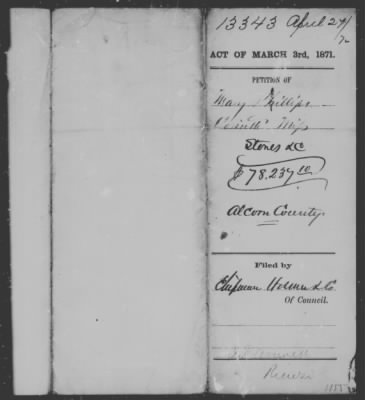 13343 April 24/72
ACT OF MARCH 3rd, 1871.
PETITION OF
Mary Phillips
Corinth Miss
Stores &c
$78,237 10
Alcorn County
Filed by
Chipman Hosmer & Co.
Of Council.
Rienzi
1155